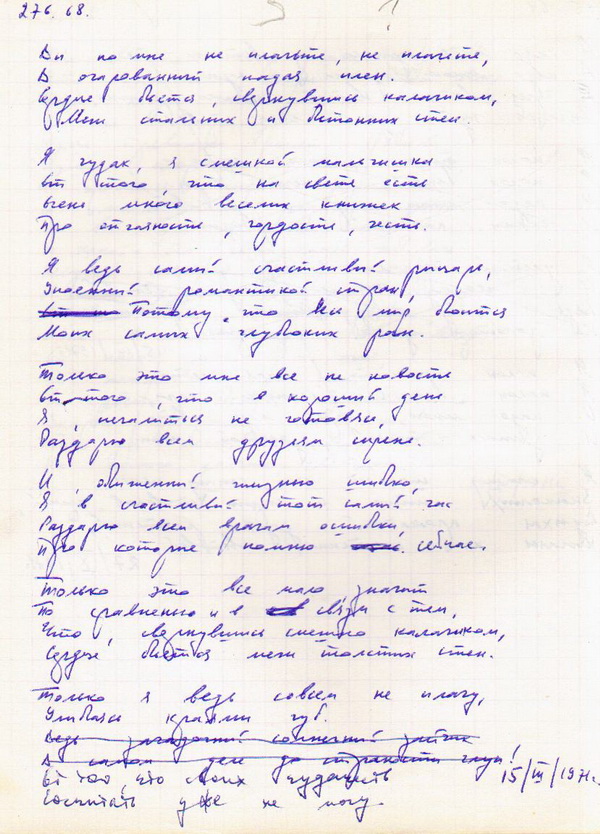 276. 68.
Вы по мне не плачьте, не плачьте,
В очарованный падая плен.
Сердце бьется, свернувшись калачиком,
Меж стальных и бетонных стен.
Я чудак, я смешной мальчишка
От того, что на свете есть
Очень много веселых книжек
Про отчаяность, гордость, честь.
Я ведь самый счастливый рыцарь,
Знаменит романтикой стран,
Потому, что Мир боится
Моих самых глубоких ран.
Только это мне все не новость
От того, что в хороший день
Я, печалиться не готовясь,
Раздарю всем друзьям сирень.
И, обиженный жизнью шибко,
Я в счастливый тот самый час
Раздарю всем врагам ошибки,
Про которые помню сейчас.
Только это все мало значит
По сравненью и в связи с тем,
Что, свернувшись смешно калачиком,
Сердце бьется меж толстых стен.
Только я ведь совсем не плачу,
Улыбаясь краями губ.
Ведь загадочный солнечный зайчик
В самом деле до странности глуп!
От того, что своих чудачеств
Сосчитать уже не могу.
15/III/1971г.